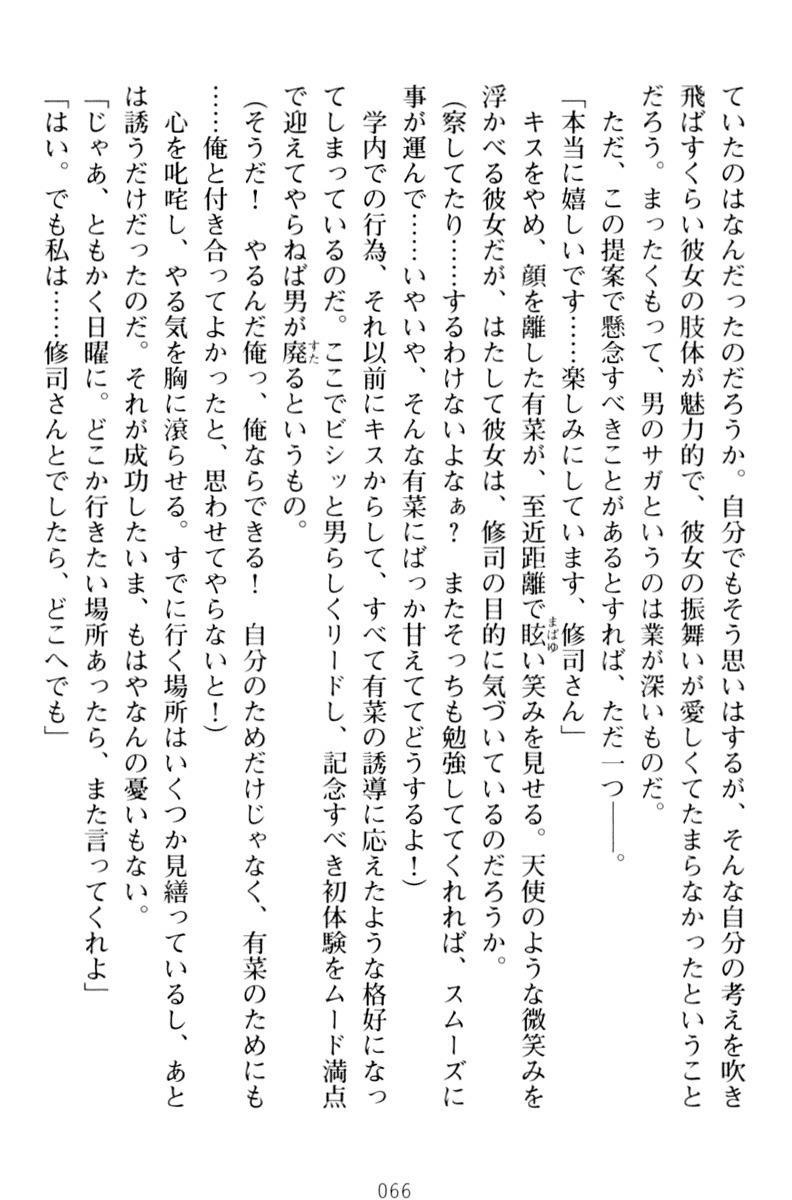 ていたのはなんだったのだろうか。自分でもそう思いはするが、そんな自分の考えを吹き
飛ばすくらい彼女の肢体が魅力的で、彼女の振舞いが愛しくてたまらなかったということ
だろう。まったくもって、男のサガというのは業が深いものだ。
ただ、この提案で懸念すべきことがあるとすれば、ただ一つ――。
「本当に嬉しいです……楽しみにしています、修司さん」
キスをやめ、顔を離した有菜が、至近距離で眩い笑みを見せる。天使のような微笑みを
まばゆ
浮かべる彼女だが、はたして彼女は、修司の目的に気づいているのだろうか。
(察してたり……するわけないよなぁ? またそっちも勉強しててくれれば、スムーズに
事が運んで……いやいや、そんな有菜にばっか甘えててどうするよ!)
学内での行為、それ以前にキスからして、すべて有菜の誘導に応えたような格好になっ
てしまっているのだ。ここでビシッと男らしくリードし、記念すべき初体験をムード満点
で迎えてやらねば男が廃るというもの。
すた
(そうだ! やるんだ俺っ、俺ならできる! 自分のためだけじゃなく、有菜のためにも
……俺と付き合ってよかったと、思わせてやらないと!)
心を叱咤し、やる気を胸に滾らせる。すでに行く場所はいくつか見繕っているし、あと
は誘うだけだったのだ。それが成功したいま、もはやなんの憂いもない。
「じゃあ、ともかく日曜に。どこか行きたい場所あったら、また言ってくれよ」
「はい。でも私は……修司さんとでしたら、どこへでも」
066